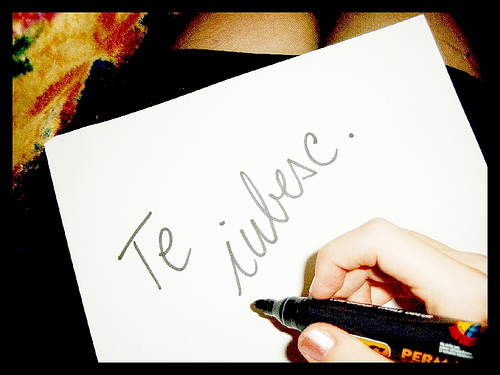 Te iubesc.
PERMA